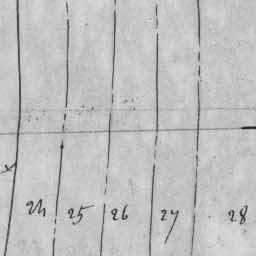 24 25 26 27 28